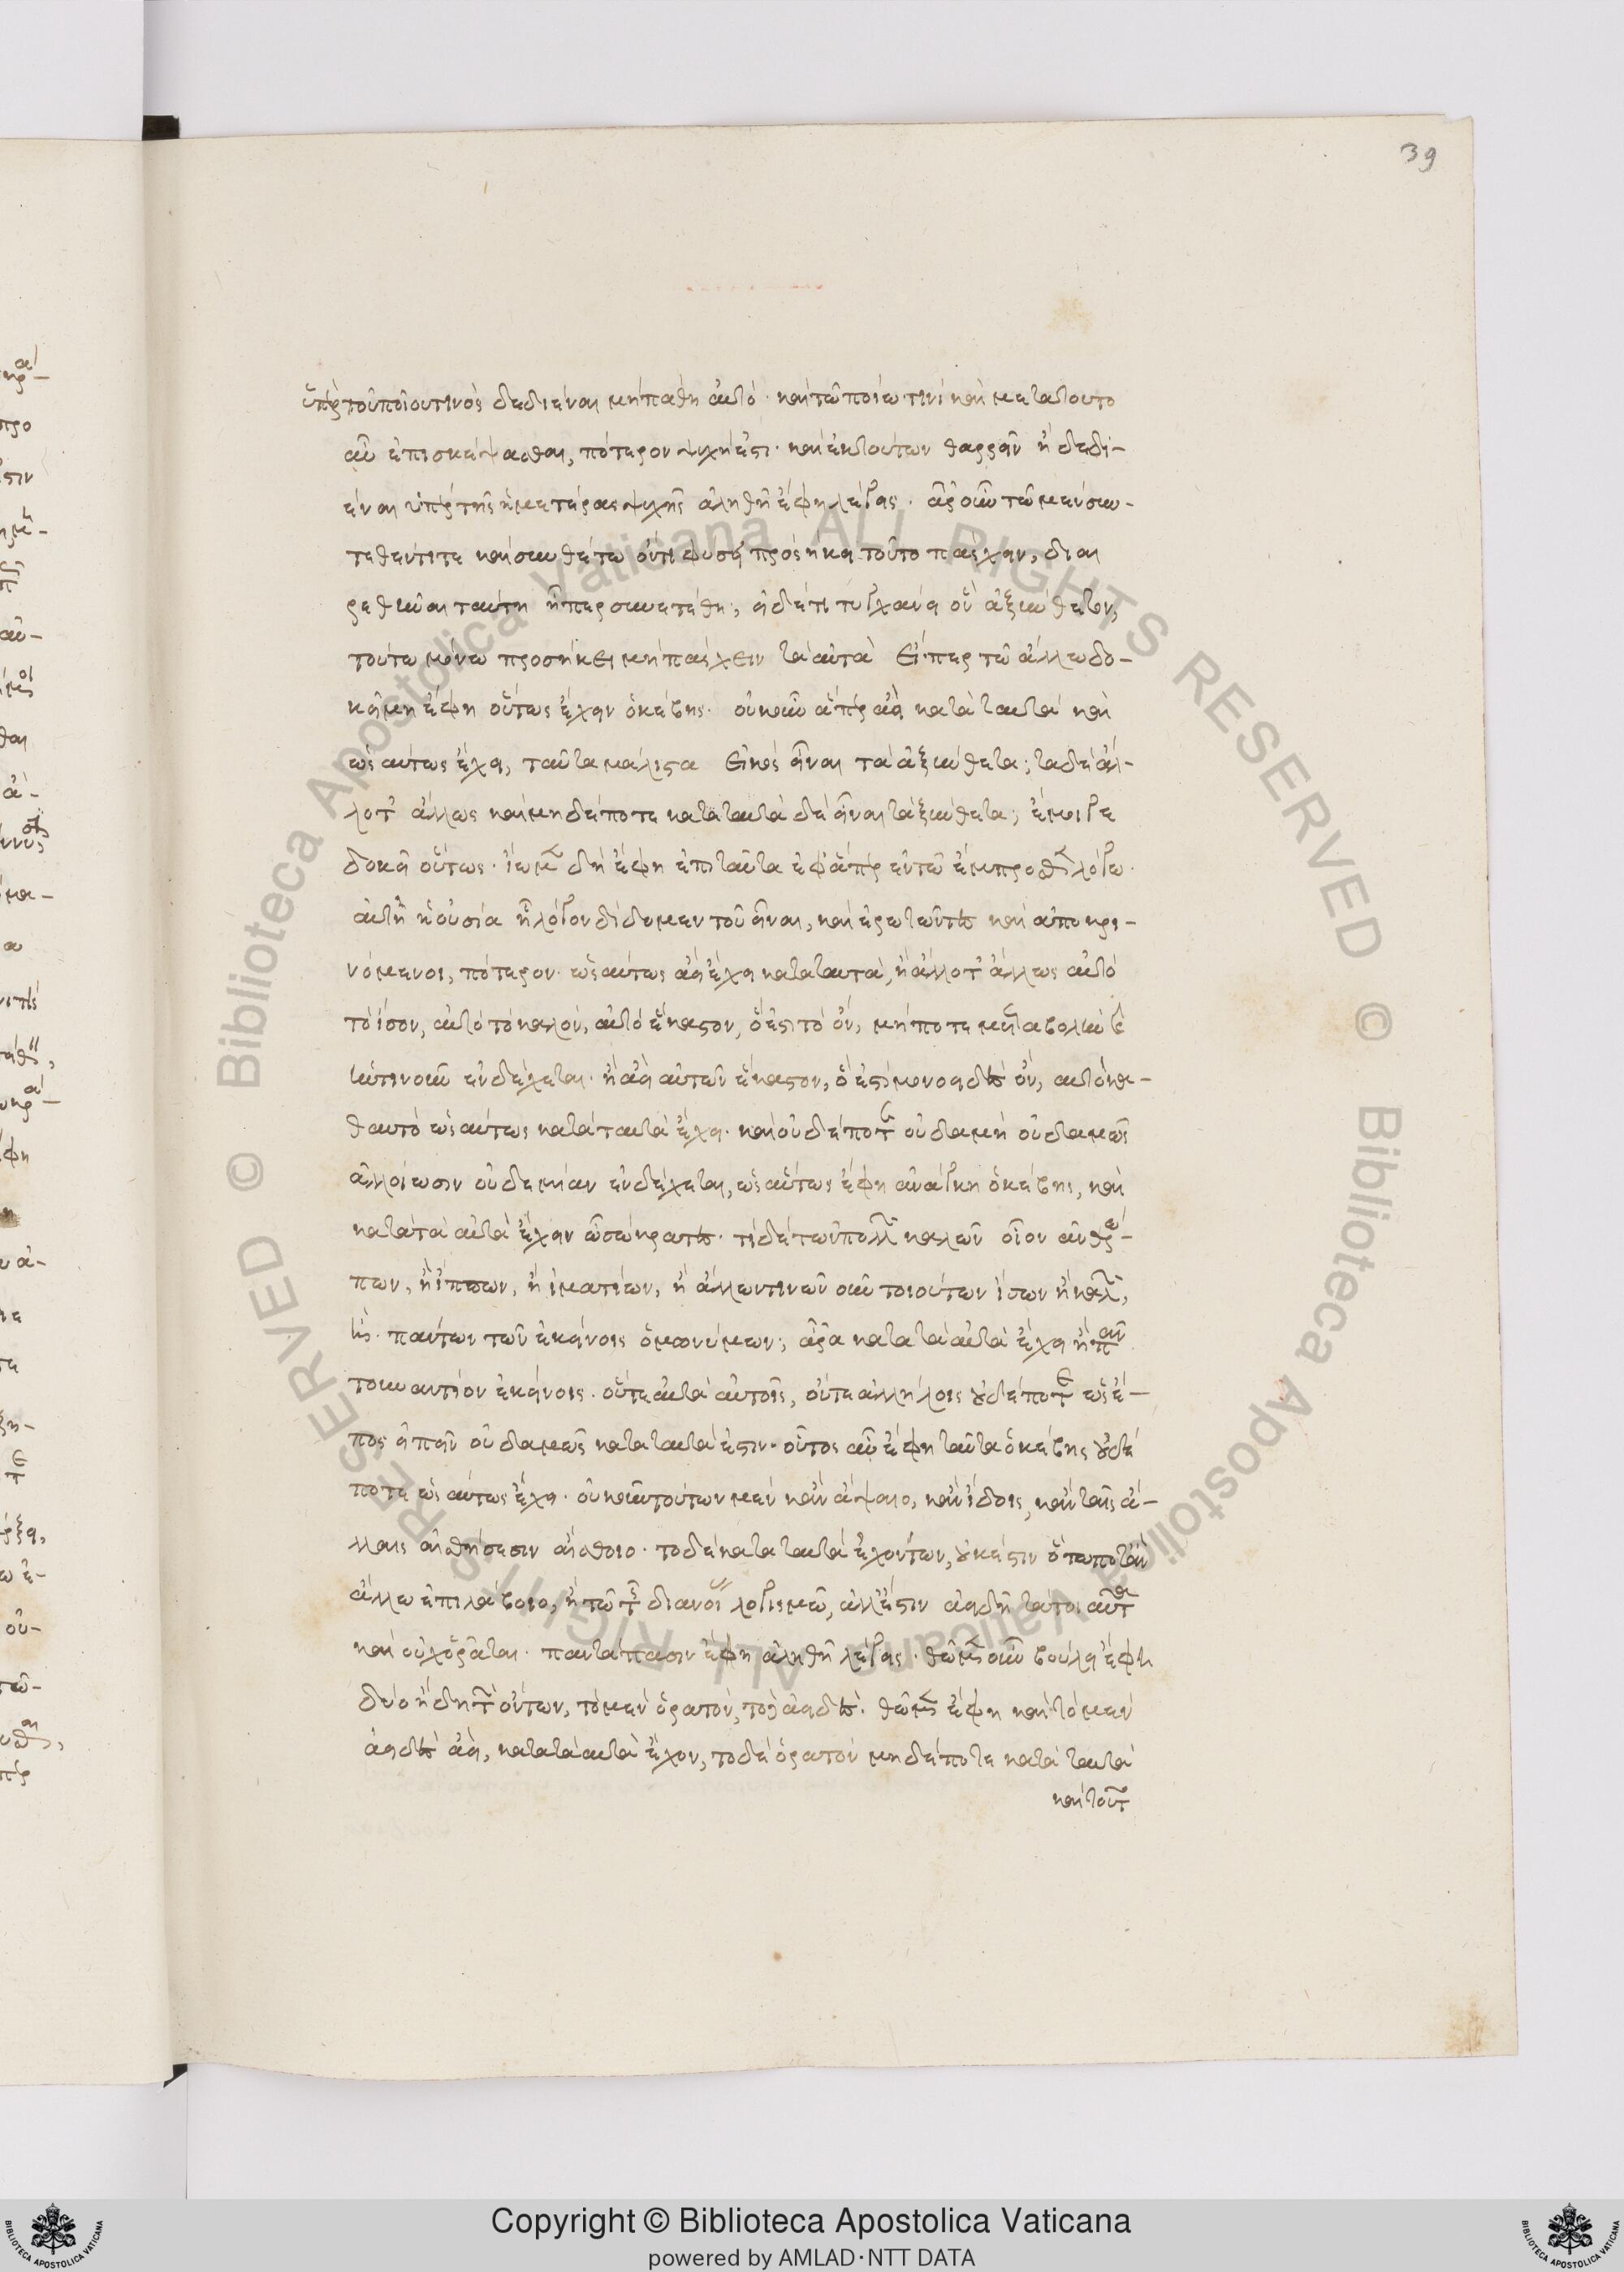 39
ὑπὲρ τοῦ ποίου τινὸς δεδιέναι μὴ πάθη αὐτό· καὶ τῶ ποίω τινί καὶ μετὰ τοῦτο
αὖ ἐπισκέψασθαι, πότερον ψυχή ἐστι· καὶ ἐκ τούτων θαρρεῖν ἢ δεδι-
έναι ὑπὲρ τῆς ἡμετέρας ψυχῆς ἀληθῆ ἔφη λέγεις. ἆρ' οὖν τῶ μὲν συν-
τεθέντι τε καὶ συνθέτω ὄντι φύσει προσήκει τοῦτο πάσχειν, διαι
ρεθῆναι ταύτη ἧπερ συνετέθη, εἰ δέ τι τυγχάνει ὂν ἀξύνθετον,
τούτω μόνω προσήκει μὴ πάσχειν ταῦτα εἴπερ τῶ ἄλλω δο-
κεῖ μοι ἔφη οὕτως ἔχειν ὁ κέβης. οὐκοῦν ἅπερ ἀεὶ κατὰ ταυτά καὶ
ὡσαύτως ἔχει, ταῦτα μάλιστα εἰκὸς εἶναι τὰ ἀξύνθετα; τὰ δὲ ἄλ-
λοτ' ἄλλως καὶ μηδέποτε κατὰ ταυτὰ δὲ εἶναι τὰ ξύνθετα; ἔμοιγε
δοκεῖ οὕτως. ἴωμεν δὴ ἔφη ἐπὶ ταῦτα ἐφ' ἅπερ ἐν τῶ ἔμπροσθεν λόγω.
αὐτὴ ἡ οὐσία ἧς λόγον δίδομεν τοῦ εἶναι, καὶ ἐρωτῶντες καὶ ἀποκρι-
νόμενοι, πότερον ὡσαύτως ἀεὶ ἔχει κατὰ ταυτά, ἢ ἄλλοτ' ἄλλως αὐτό
τὸ ἴσον, αὐτό τὸ καλόν, αὐτό ἕκαστον, ὅ ἐστι τὸ ὄν, μήποτε μεταβολὴν
ἡντινοῦν ἐνδέχεται. ἢ ἀεὶ αὐτῶν ἕκαστον, ὅ ἐστι μονοειδὲς ὄν, αὐτὸ κα-
θαυτό ὡσαύτως κατὰ ταυτὰ ἔχει. καὶ οὐδέποτε οὐδαμῆ οὐδαμῶς
ἀλλοίωσιν οὐδεμίαν ἐνδέχεται, ὡσαύτως ἔφη ἀνάγκη ὁ κέβης, καὶ
κατὰ τὰ αὐτὰ ἔχειν ὦ σώκρατες. τί δὲ τῶν πολλῶν καλῶν οἷον ἀνθρώ-
πων, ἢ ἵππων, ἢ ἱματίων, ἢ ἄλλων τινῶν οὖν τοιούτων ἴσων ἢ καλῶν,
πάντων τῶν ἐκείνοις ὁμωνύμων; ἆρα κατὰ τὰ αὐτὰ ἔχει ἢ πᾶν
τουναντίον ἐκείνοις. οὔτε αὐτὰ αὑτοῖς, οὔτε ἀλλήλοις οὐδέποτε ὡς ἔ-
πος εἰπεῖν οὐδαμῶς κατὰ ταυτά ἐστιν. οὕτως αὖ ἔφη ταῦτα ὁ κέβης οὐδέ
ποτε ὡσαύτως ἔχει. οὐκοῦν τούτων μὲν κἂν ἅψαιο, κἂν ἴδοις, κἂν ταῖς ἄ-
λλαις αἰσθήσεσιν αἴσθοιο. τὸ δὲ κατὰ ταυτά ἐχόντων, οὐκ ἔστιν ὅτω ποτ' ἂν
ἄλλω ἐπιλάβοιο, ἢ τῶ τῆς διανοίας λογισμῶ, ἀλλ' ἔστιν ἀειδῆ
καὶ οὐχ ὁρᾶται. παντάπασιν ἔφη ἀληθῆ λέγεις. θῶμεν οὖν βούλει ἔφη
δύο εἴδη τῶν ὄντων, τὸ μὲν ὁρατόν, τὸ δὲ ἀειδές. θῶμεν ἔφη καὶ τὸ μὲν
ἀειδὲς ἀεὶ, κατὰ τὰ αὐτὰ ἔχον, τὸ δὲ ὁρατόν μηδέποτε κατὰ ταυτά
καὶ τοῦτ
Copyright © Biblioteca Apostolica Vaticana
powered by AMLAD·NTT DATA
BIBLIOTECA APOSTOLICA VATICANA
BIBLIOTECA APOSTOLICA VATICANA
© Biblioteca Apostolica Vaticana ALL RIGHTS RESERVED
© Biblioteca Apostolica Vaticana ALL RIGHTS RESERVED